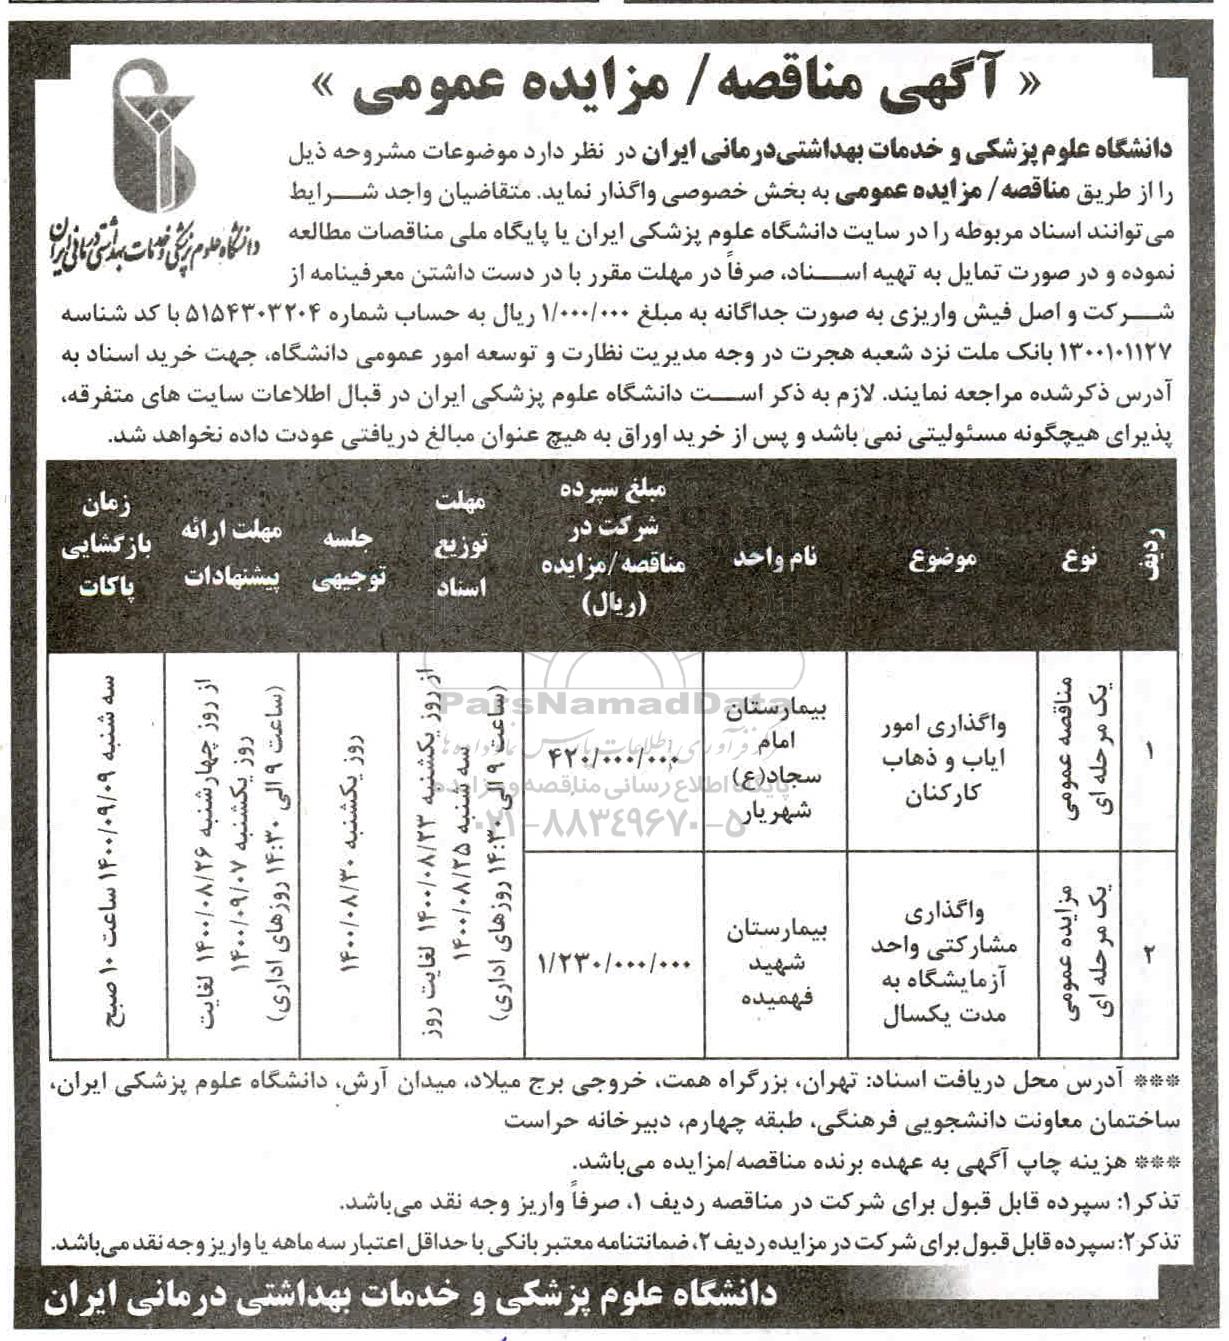 « آگهی مناقصه/ مزایده عمومی »
دانشگاه علوم پزشکی و خدمات بهداشتی درمانی ایران
دانشگاه علوم پزشکی و خدمات بهداشتی‌درمانی ایران در نظر دارد موضوعات مشروحه ذیل
را از طریق مناقصه/ مزایده عمومی به بخش خصوصی واگذار نماید. متقاضیان واجد شرایط
می‌توانند اسناد مربوطه را در سایت دانشگاه علوم پزشکی ایران یا پایگاه ملی مناقصات مطالعه
نموده و در صورت تمایل به تهیه اسناد، صرفاً در مهلت مقرر با در دست داشتن معرفینامه از
شرکت و اصل فیش واریزی به صورت جداگانه به مبلغ ۱/۰۰۰/۰۰۰ ریال به حساب شماره ۵۱۵۴۳۰۳۲۰۴ با کد شناسه
۱۳۰۰۱۰۱۱۲۷ بانک ملت نزد شعبه هجرت در وجه مدیریت نظارت و توسعه امور عمومی دانشگاه، جهت خرید اسناد به
آدرس ذکرشده مراجعه نمایند. لازم به ذکر است دانشگاه علوم پزشکی ایران در قبال اطلاعات سایت های متفرقه،
پذیرای هیچگونه مسئولیتی نمی باشد و پس از خرید اوراق به هیچ عنوان مبالغ دریافتی عودت داده نخواهد شد.
ردیف
نوع
موضوع
نام واحد
مبلغ سپرده
شرکت در
مناقصه/مزایده
(ریال)
مهلت
توزیع
اسناد
جلسه
توجیهی
مهلت ارائه
پیشنهادات
زمان
بازگشایی
پاکات
۱
مناقصه عمومی
یک مرحله ای
واگذاری امور
ایاب و ذهاب
کارکنان
بیمارستان
امام
سجاد(ع)
شهریار
۴۲۰/۰۰۰/۰۰۰
از روز یکشنبه ۱۴۰۰/۰۸/۲۳ لغایت روز
سه شنبه ۱۴۰۰/۰۸/۲۵
(ساعت ۹ الی ۱۴:۳۰ روزهای اداری)
روز یکشنبه ۱۴۰۰/۰۸/۳۰
از روز چهارشنبه ۱۴۰۰/۰۸/۲۶ لغایت
روز یکشنبه ۱۴۰۰/۰۹/۰۷
(ساعت ۹ الی ۱۴:۳۰ روزهای اداری)
سه شنبه ۱۴۰۰/۰۹/۰۹ ساعت ۱۰ صبح
۲
مزایده عمومی
یک مرحله ای
واگذاری
مشارکتی واحد
آزمایشگاه به
مدت یکسال
بیمارستان
شهید
فهمیده
۱/۲۳۰/۰۰۰/۰۰۰
ParsNamadData
مرکز فرآوری اطلاعات پارس نماد داده ها
پایگاه اطلاع رسانی مناقصه و مزایده
۰۲۱-۸۸۳۴۹۶۷۰-۵
*** آدرس محل دریافت اسناد: تهران، بزرگراه همت، خروجی برج میلاد، میدان آرش، دانشگاه علوم پزشکی ایران،
ساختمان معاونت دانشجویی فرهنگی، طبقه چهارم، دبیرخانه حراست
*** هزینه چاپ آگهی به عهده برنده مناقصه/مزایده می‌باشد.
تذکر۱: سپرده قابل قبول برای شرکت در مناقصه ردیف ۱، صرفاً واریز وجه نقد می‌باشد.
تذکر۲: سپرده قابل قبول برای شرکت در مزایده ردیف ۲، ضمانتنامه معتبر بانکی با حداقل اعتبار سه ماهه یا واریز وجه نقد می‌باشد.
دانشگاه علوم پزشکی و خدمات بهداشتی درمانی ایران